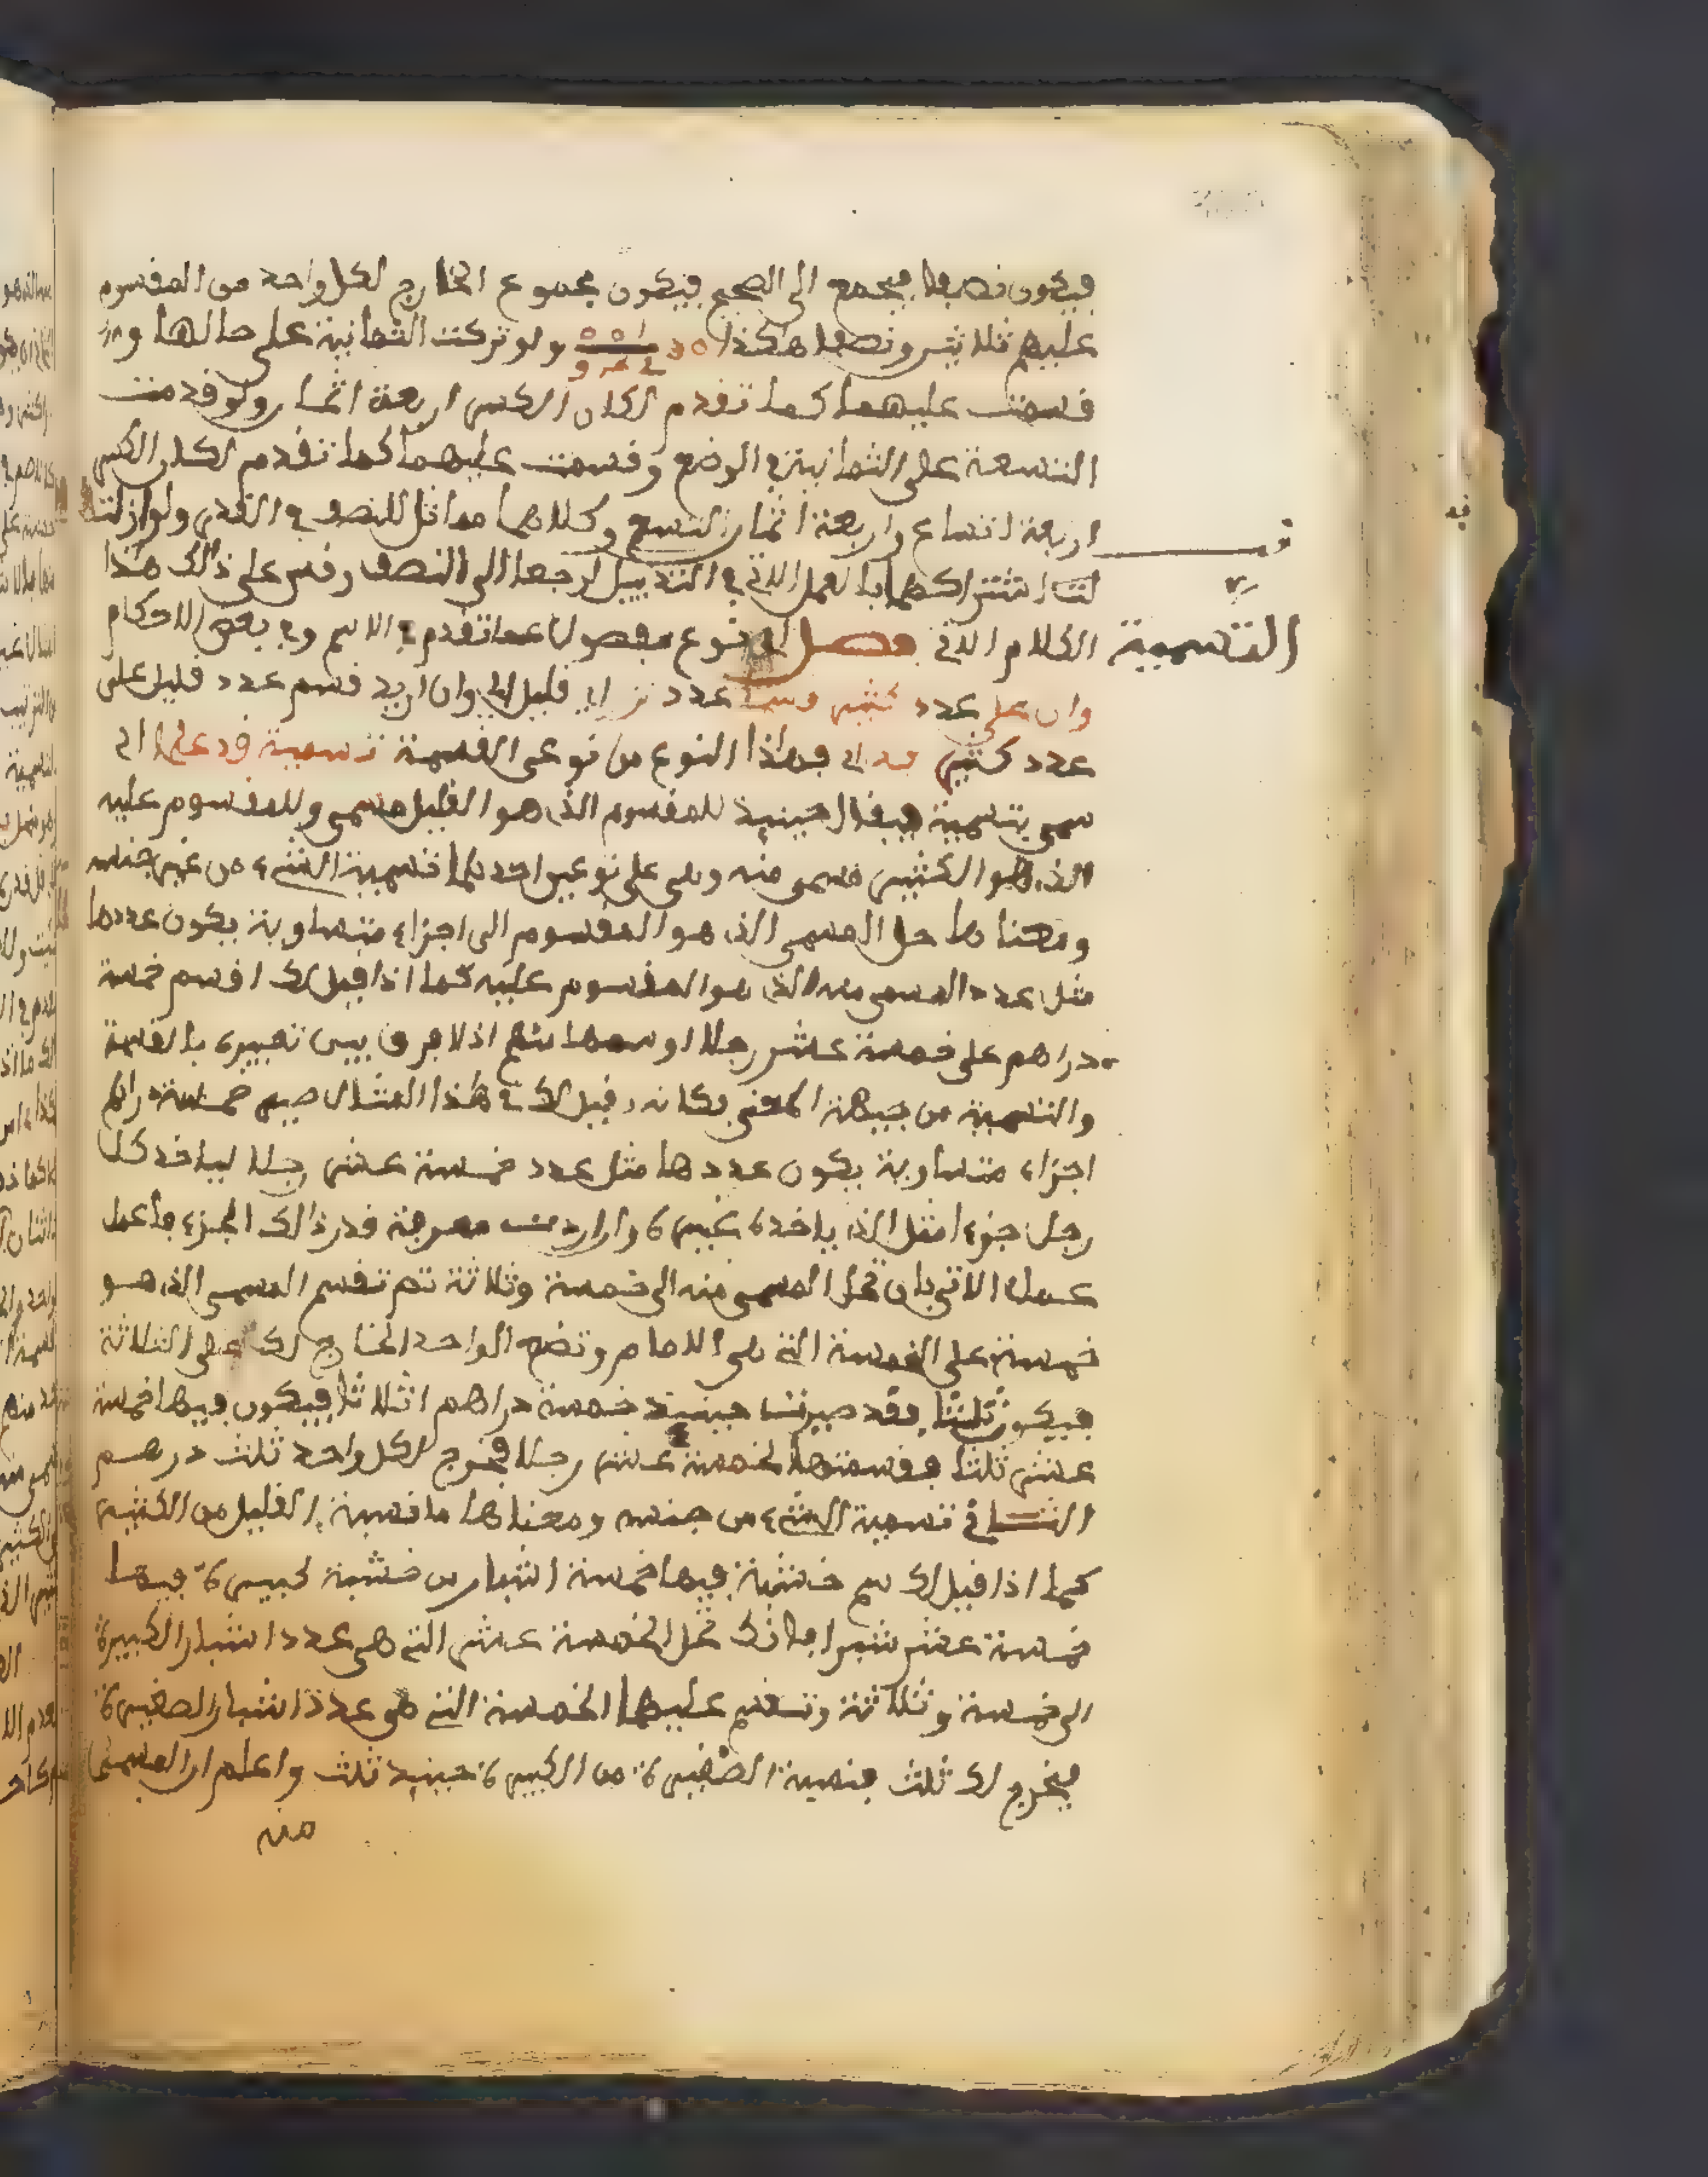 فيكون نصفا فيجمع الى الصحيح فيكون مجموع الخارج لكل واحد من المقسوم
عليهم ثلاثين ونصفا هكذا ولو تركت الثمانية على حالها و
قسمت عليهما كما تقدم لكان الكسر اربعة اثمان ولو قدمت
التسعة على الثمانية في الوضع وقسمت عليهما كما تقدم لكان الكسر
اربعة اتساع واربعة اثمان التسع وكلاهما مماثل للنصف في القدر ولو ازلت
اشتراكهما بالعمل الاتي في التذييل لرجعا الى النصف وقس على ذالك هذا
التسمية
الكلام الاتي فصل نوع مفصول عما تقدم في الاسم وفي بعض الاحكام
وان على عدد كثير عدد قليل وان اريد قسم عدد قليل على
عدد كثير فهذا النوع من نوعي القسمة تسمية قد علما اي
سمي بتسمية فيقال حينيذ للمقسوم الذي هو القليل مسمى وللمقسوم عليه
الذي هو الكثير مسمى منه وهي على نوعين احدهما تسمية الشيء من غير جنسه
ومعناها حل المسمى الذي هو المقسوم الى اجزاء متساوية يكون عددها
مثل عدد المسمى منه الذي هو المقسوم عليه كما اذا قيل لك اقسم خمسة
دراهم على خمسة عشر رجلا او سمها منهم اذ لا فرق بين تعبيره بالقسمة
والتسمية من جهة المعنى فكانه قيل لك في هذا المثال صير خمسة دراهم
اجزاء متساوية يكون عددها مثل عدد خمسة عشر رجلا لياخذ كل
رجل جزءا مثل الذي ياخذه غيره واذا اردت معرفة قدر ذالك الجزء فاعمل
عمله الاتي بان تحل المسمى منه الى خمسة وثلاثة ثم تقسم المسمى الذي هو
خمسة على الخمسة التي هي الامام وتضع الواحد الخارج لك على الثلاثة
فيكون ثلثا فقد صيرت حينيذ خمسة دراهم اثلاثا فيكون فيها خمسة
عشر ثلثا فقسمتها لخمسة عشر رجلا فخرج لكل واحد ثلث درهم
الثاني تسمية الشيء من جنسه ومعناها ما نسبة القليل من الكثير
كما اذا قيل لك سم خشبة فيها خمسة اشبار من خشبة كبيرة فيها
خمسة عشر شبرا فانك تحل الخمسة عشر التي هي عدد اشبار الكبيرة
الى خمسة وثلاثة وتقسم عليهما الخمسة التي هي عدة اشبار الصغيرة
فيخرج لك ثلث فنسبة الصغيرة من الكبيرة حينيذ ثلث واعلم ان المسمى
منه